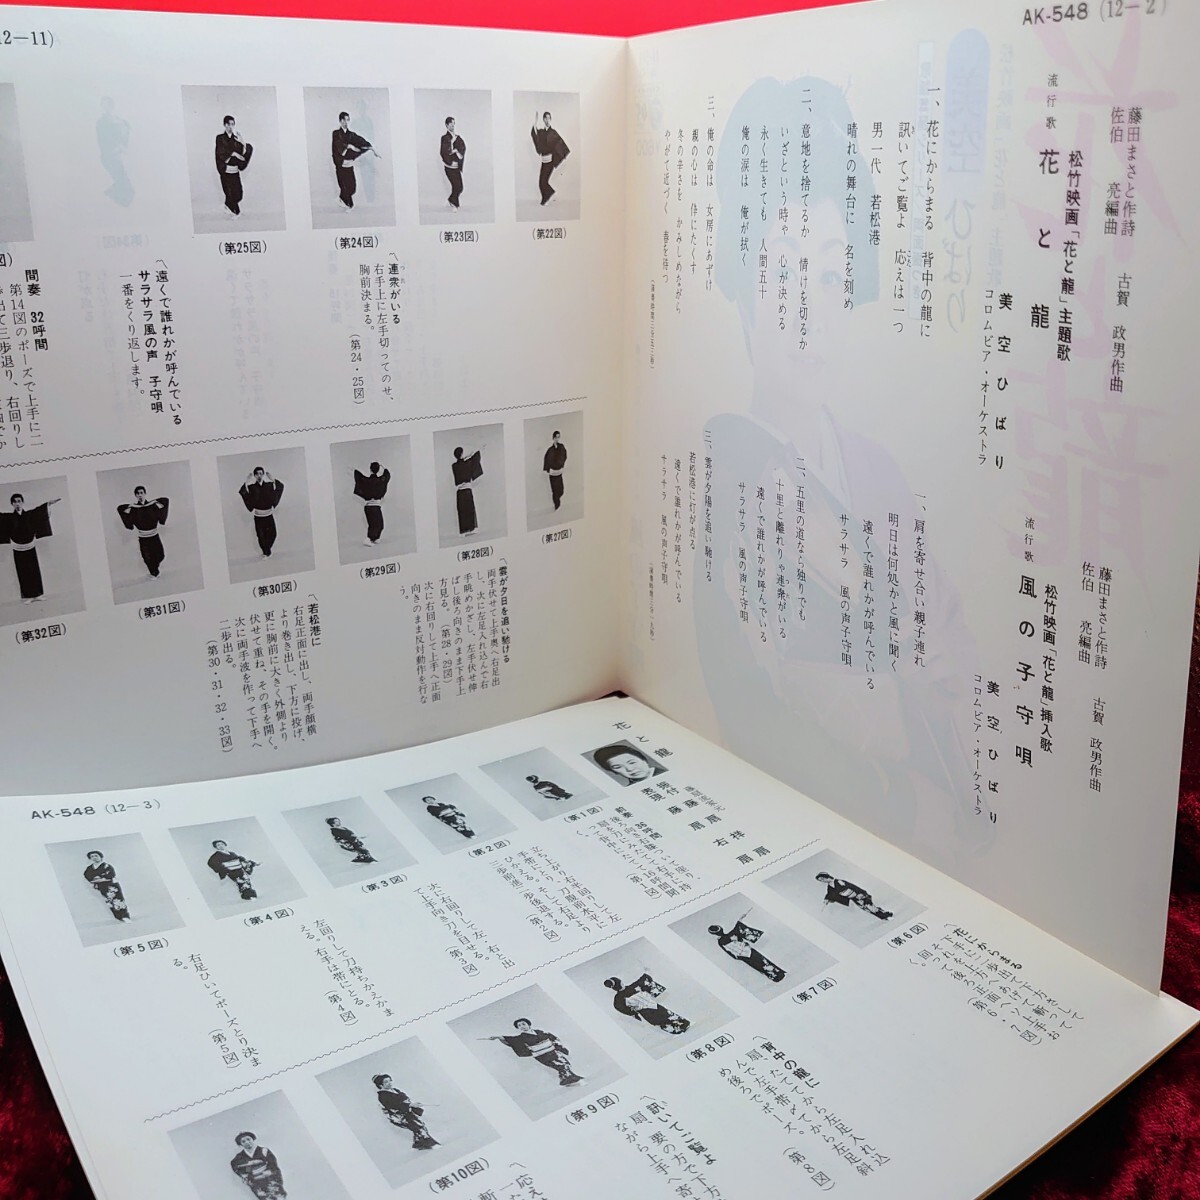 AK-548（12－2）
藤田まさと作詩
佐伯　亮編曲
古賀　政男作曲
松竹映画「花と龍」主題歌
流行歌　花と龍
美空ひばり
コロムビア・オーケストラ
一、花にからまる　背中の龍に
訊いてご覧よ　応えは一つ
男一代　若松港
晴れの舞台に　名を刻め
二、意地を捨てるか　情けを切るか
いざという時ゃ　心が決める
永く生きても　人間五十
俺の涙は　俺が拭く
三、俺の命は　女房にあずけ
親の心は　伜にたくす
冬の辛さを　かみしめながら
やがて近づく　春を待つ
藤田まさと作詩
佐伯　亮編曲
古賀　政男作曲
松竹映画「花と龍」挿入歌
流行歌　風の子守唄
美空ひばり
コロムビア・オーケストラ
一、肩を寄せ合い親子連れ
明日は何処かと風に聞く
遠くで誰れかが呼んでいる
サラサラ　風の声子守唄
二、五里の道なら独りでも
十里と離れりゃ連衆がいる
遠くで誰れかが呼んでいる
サラサラ　風の声子守唄
三、雲が夕陽を追い馳ける
若松港に灯が点る
遠くで誰れかが呼んでいる
サラサラ　風の声子守唄
12－11）
（第22図）
（第23図）
（第24図）
（第25図）
〽連衆がいる
右手上に左手切ってのせ、
胸前決まる。
（第24・25図）
〽遠くで誰れかが呼んでいる
サラサラ風の声　子守唄
一番をくり返します。
間奏　32呼間
第14図のポーズで上手に二
歩出て三歩退り、右回りし
（第27図）
（第28図）
（第29図）
（第30図）
（第31図）
（第32図）
〽雲が夕日を追い馳ける
両手伏せて上手奥へ右足出
し、次に左足入れ込んで右
手眺めかざし、左手伏せ伸
ばし後ろ向きのまま下手上
方見る。（第28・29図）
次に右回りして上手へ正面
向きのまま反対動作を行な
う。
〽若松港に
右足正面に出し、両手顔横
より巻き出し、下方に投げ、
更に胸前に大きく外側より
伏せて重ね、その手を開く。
次に両手波を作って下手へ
二歩出る。
（第30・31・32・33図）
AK-548（12－3）
花と龍
（第1図）
（第2図）
（第3図）
（第4図）
（第5図）
前奏　36呼間
立ち上がり右半回りして左
次に右回りして左、右と出
て上手向き刀を目せる。
（第3図）
左回りして刀持ちかえかま
える。右手は帯にとる。
（第4図）
右足ひいてポーズとり決ま
る。
（第5図）
（第6図）
（第7図）
（第8図）
（第9図）
（第10図）
〽花にからまる
（第6・7図）
〽背中の龍に
（第8図）
〽訊いてご覧よ
扇、要の方で下
ながら上手へ寄
〽応え